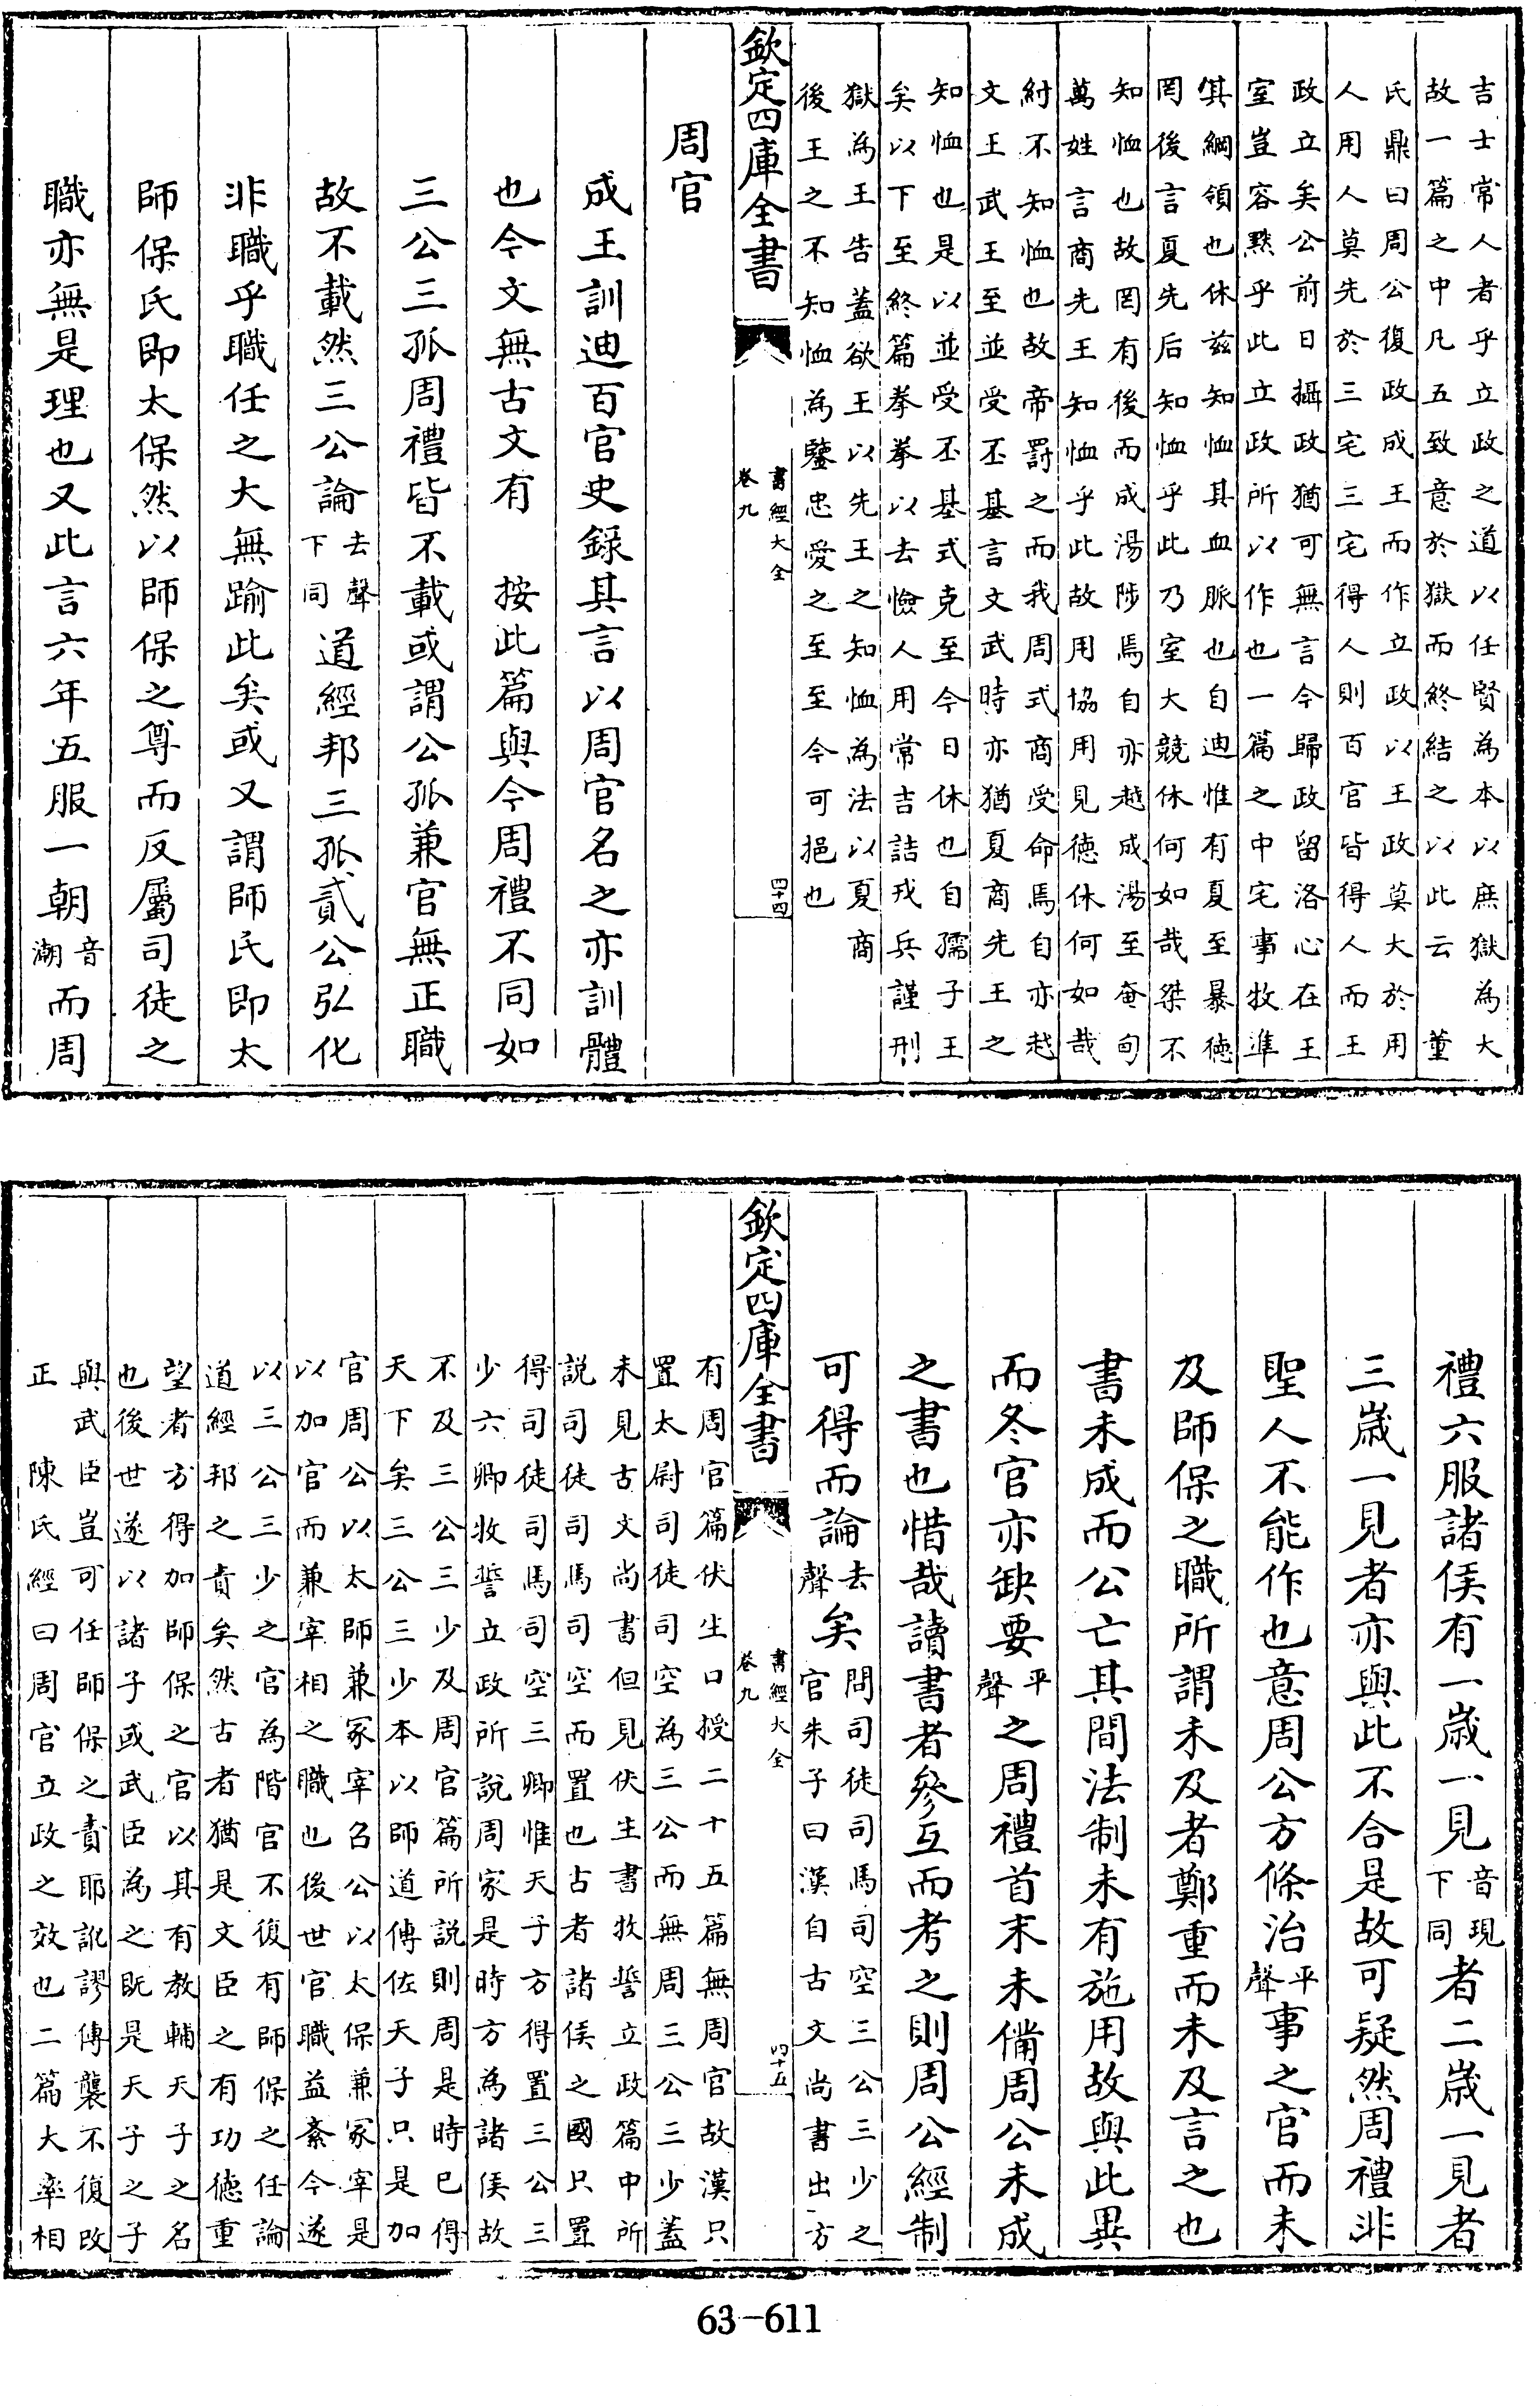 吉士常人者乎立政之道以任賢為本以庶獄為大
故一篇之中凡五致意於獄而終結之以此云　董
氏鼎曰周公復政成王而作立政以王政莫大於用
人用人莫先於三宅三宅得人則百官皆得人而王
政立矣公前日攝政猶可無言今歸政留洛心在王
室豈容黙乎此立政所以作也一篇之中宅事牧準
其綱領也休兹知恤其血脈也自迪惟有夏至暴徳
罔後言夏先后知恤乎此乃室大競休何如哉桀不
知恤也故罔有後而成湯陟焉自亦越成湯至奄甸
萬姓言商先王知恤乎此故用協用見徳休何如哉
紂不知恤也故帝罰之而我周式商受命焉自亦越
文王武王至並受丕基言文武時亦猶夏商先王之
知恤也是以並受丕基式克至今日休也自孺子王
矣以下至終篇拳拳以去憸人用常吉詰戎兵謹刑
獄為王告蓋欲王以先王之知恤為法以夏商
後王之不知恤為鑒忠愛之至至今可挹也
欽定四庫全書
書經大全
卷九
四十四
周官
成王訓迪百官史錄其言以周官名之亦訓體
也今文無古文有　按此篇與今周禮不同如
三公三孤周禮皆不載或謂公孤兼官無正職
故不載然三公論去聲下同道經邦三孤貳公弘化
非職乎職任之大無踰此矣或又謂師氏即太
師保氏即太保然以師保之尊而反屬司徒之
職亦無是理也又此言六年五服一朝音潮而周
禮六服諸侯有一歲一見音現下同者二歲一見者
三歲一見者亦與此不合是故可疑然周禮非
聖人不能作也意周公方條治平聲事之官而未
及師保之職所謂未及者鄭重而未及言之也
書未成而公亡其間法制未有施用故與此異
而冬官亦缺要平聲之周禮首末未備周公未成
之書也惜哉讀書者參互而考之則周公經制
可得而論去聲矣問司徒司馬司空三公三少之
官朱子曰漢自古文尚書出方
欽定四庫全書
書經大全
卷九
四十五
有周官篇伏生口授二十五篇無周官故漢只
置太尉司徒司空為三公而無周三公三少蓋
未見古文尚書但見伏生書牧誓立政篇中所
説司徒司馬司空而置也古者諸侯之國只置
得司徒司馬司空三卿惟天子方得置三公三
少六卿牧誓立政所說周家是時方為諸侯故
不及三公三少及周官篇所説則周是時已得
天下矣三公三少本以師道傅佐天子只是加
官周公以太師兼冢宰召公以太保兼冢宰是
以加官而兼宰相之職也後世官職益紊今遂
以三公三少之官為階官不復有師保之任論
道經邦之責矣然古者猶是文臣之有功徳重
望者方得加師保之官以其有教輔天子之名
也後世遂以諸子或武臣為之既是天子之子
與武臣豈可任師保之責耶訛謬傳襲不復改
正　陳氏經曰周官立政之效也二篇大率相
63-611